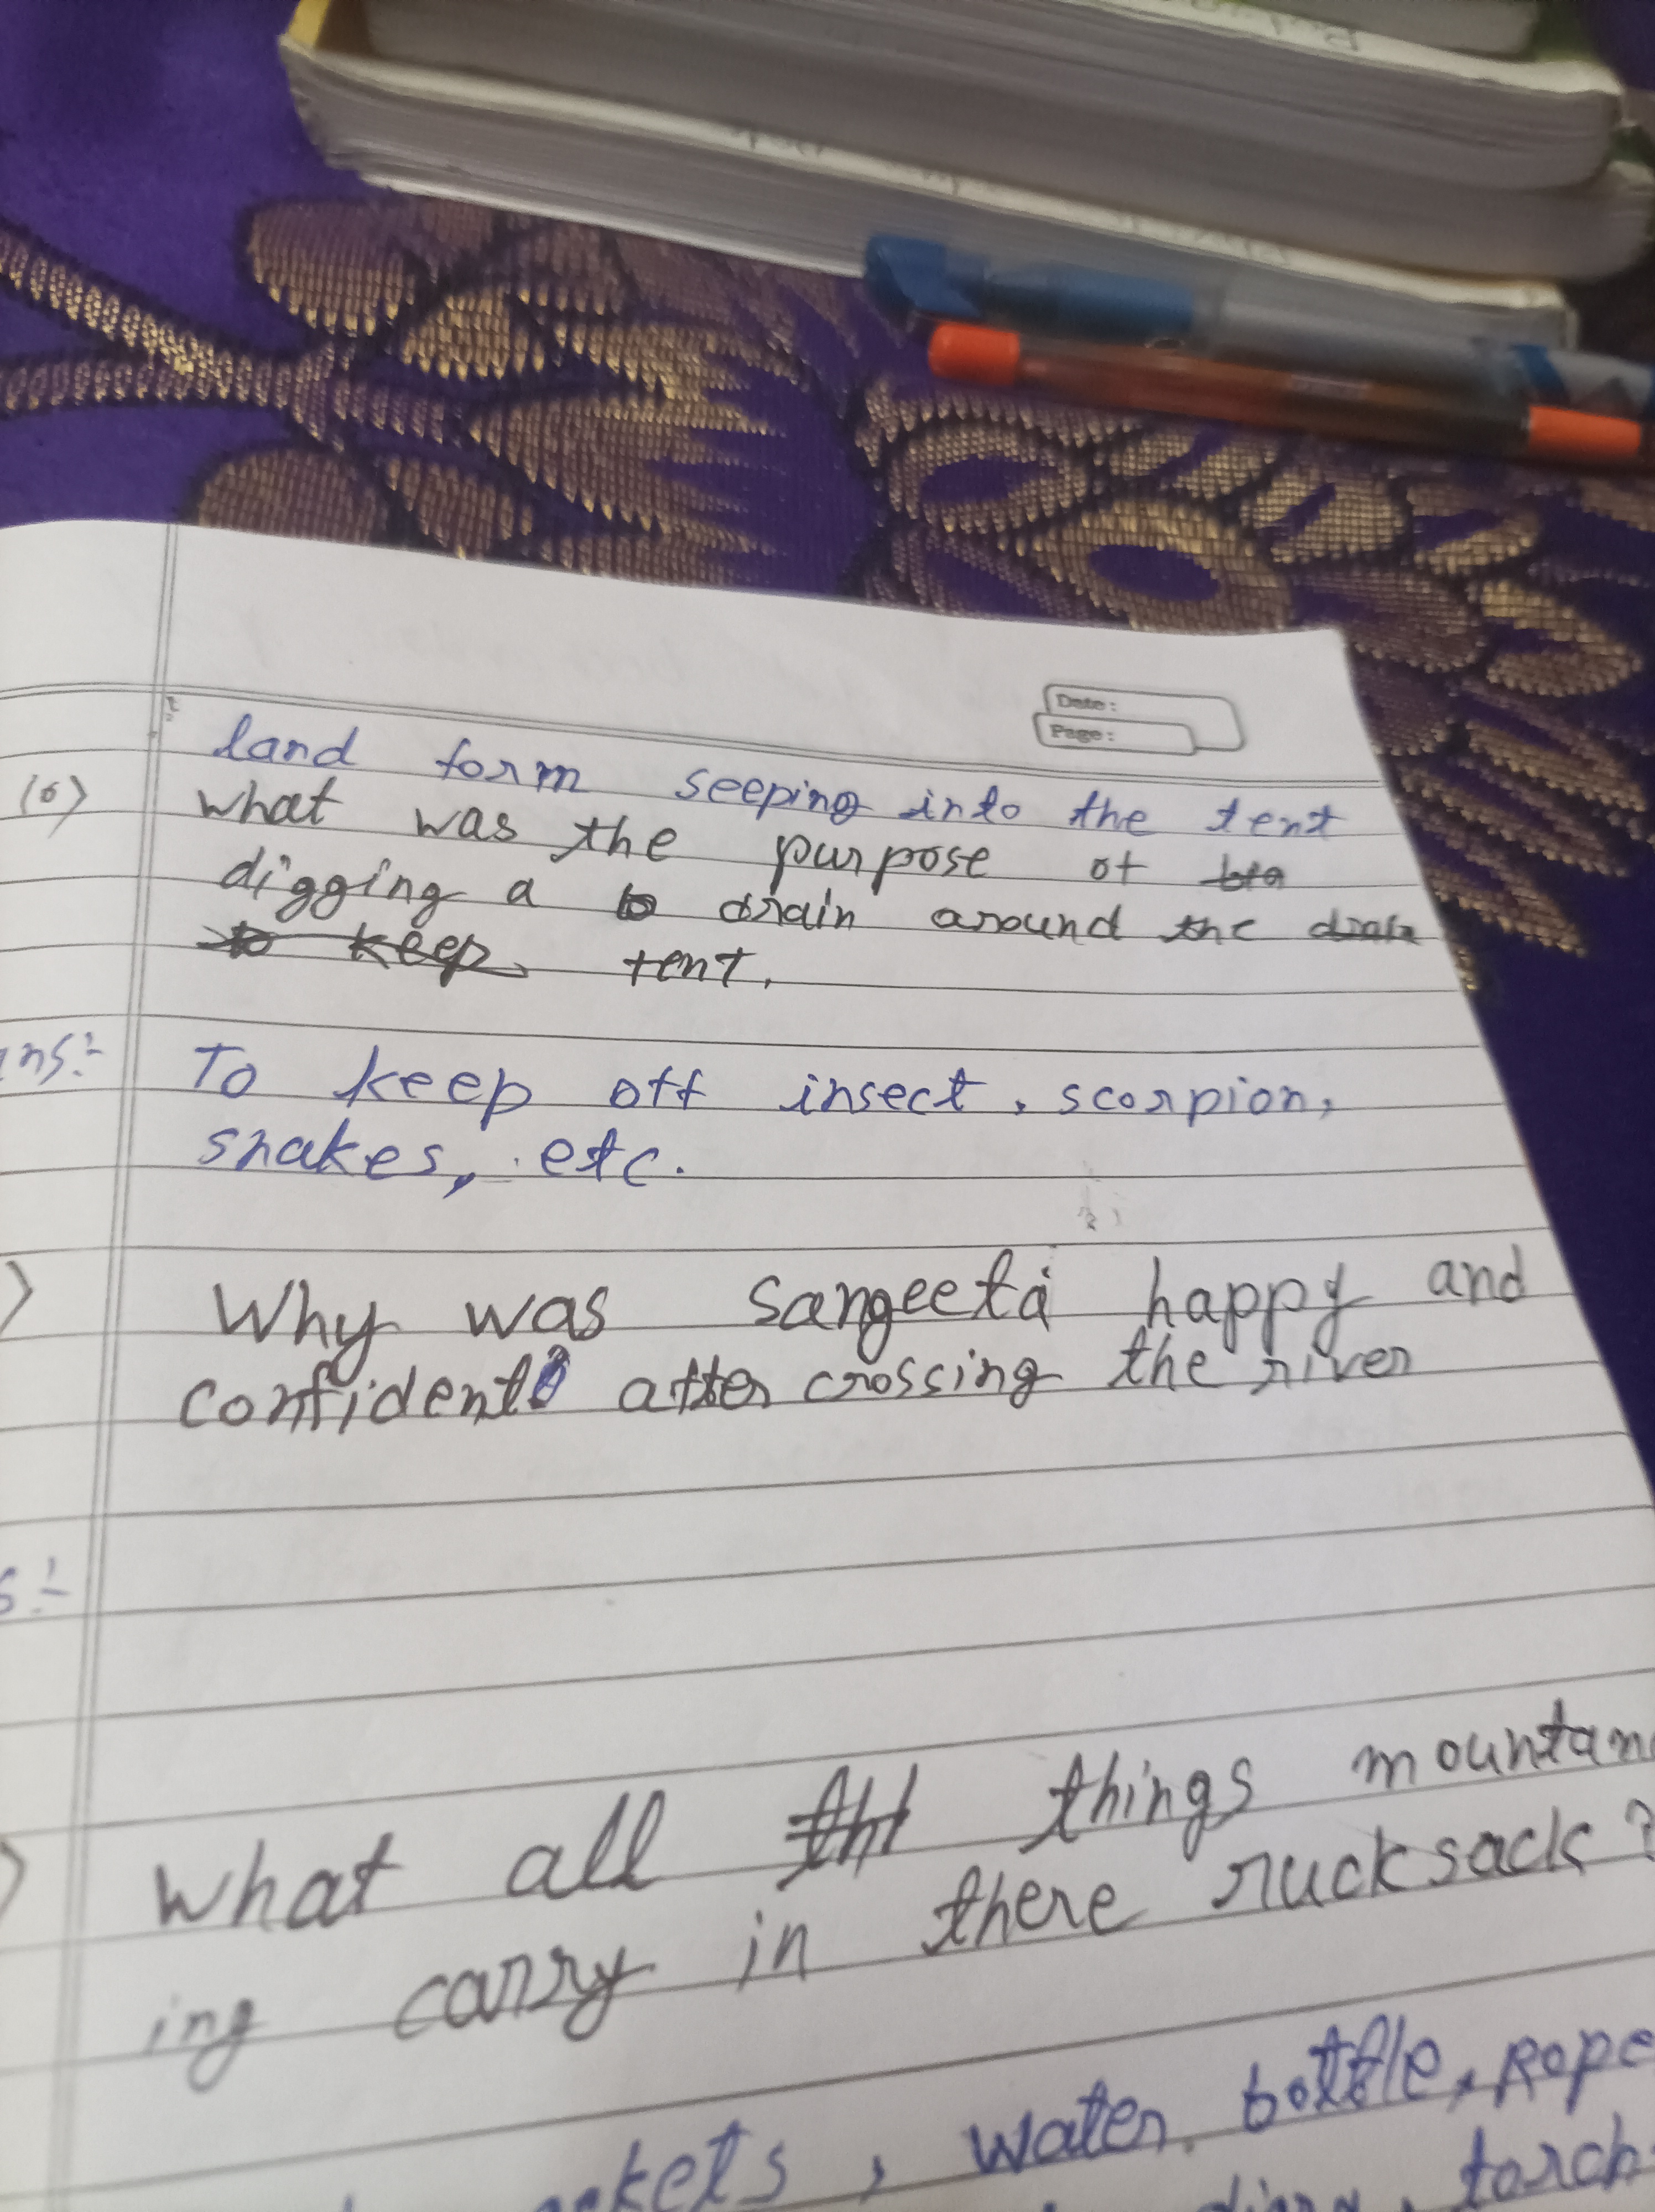 Date:
Page:
land form seeping into the tent
(6) what was the purpose of
digging a to drain around the drain
to keep tent.
ans:- To keep off insect, scorpion,
snakes, etc.
Why was sangeeta happy and
confident after crossing the river
s:-
what all things
ing carry in there rucksack?
water bottle, Rope
torch